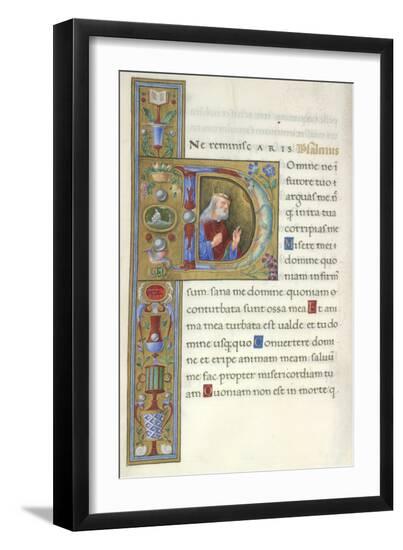 Ne reminisc ARIS Psalmus
Domine ne i
furore tuo
arguas me n
q in ira tua
corripias me
Misere mei
domine quo
niam infirm
sum. sana me domine, quoniam co
conturbata sunt ossa mea Et ani
ma mea turbata est valde, et tu do
mine usq quo Convertere domi
ne et eripe animam meam, salvū
me fac propter misericordiam tu
am Quoniam non est in morte q